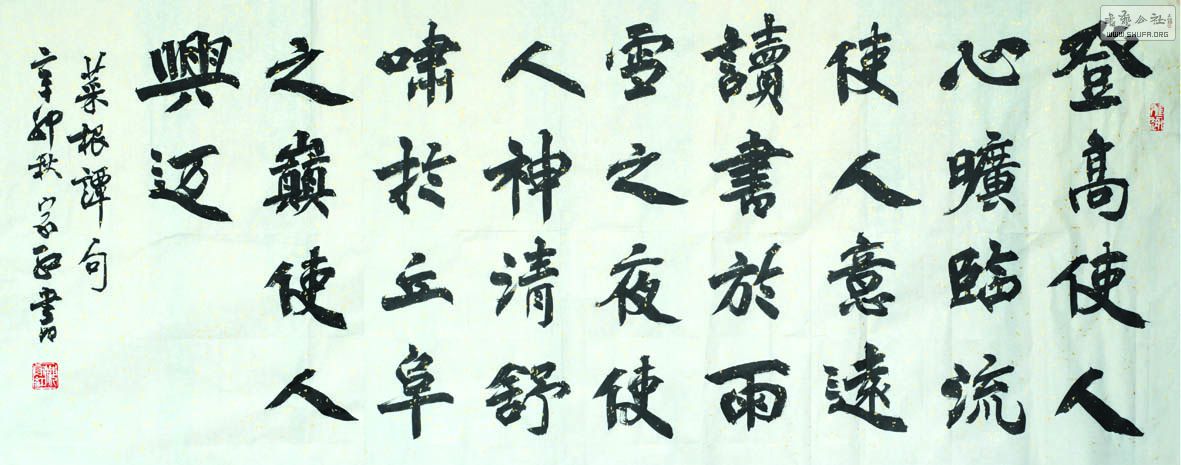 登高使人
心曠臨流
使人意遠
讀書於雨
雪之夜使
人神清舒
嘯於丘阜
之巔使人
興邁
菜根譚句
辛卯秋 書
WWW.SHUFA.ORG